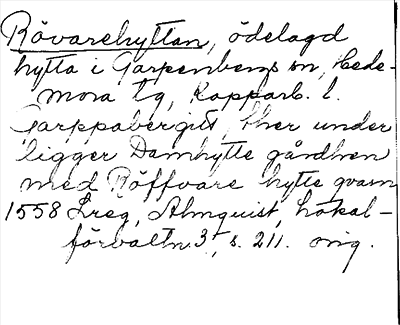 Rövarehyttan, ödelagd
hytta i Garpenbergs sn, Hede-
mora tg, Kopparb. l.
Garppabergit, ther under
ligger Damhytte gårdhen
med Röffvare hytte qvarn
1558 Åreg, Almquist, Lokal-
förvaltn 3, s. 211. orig.